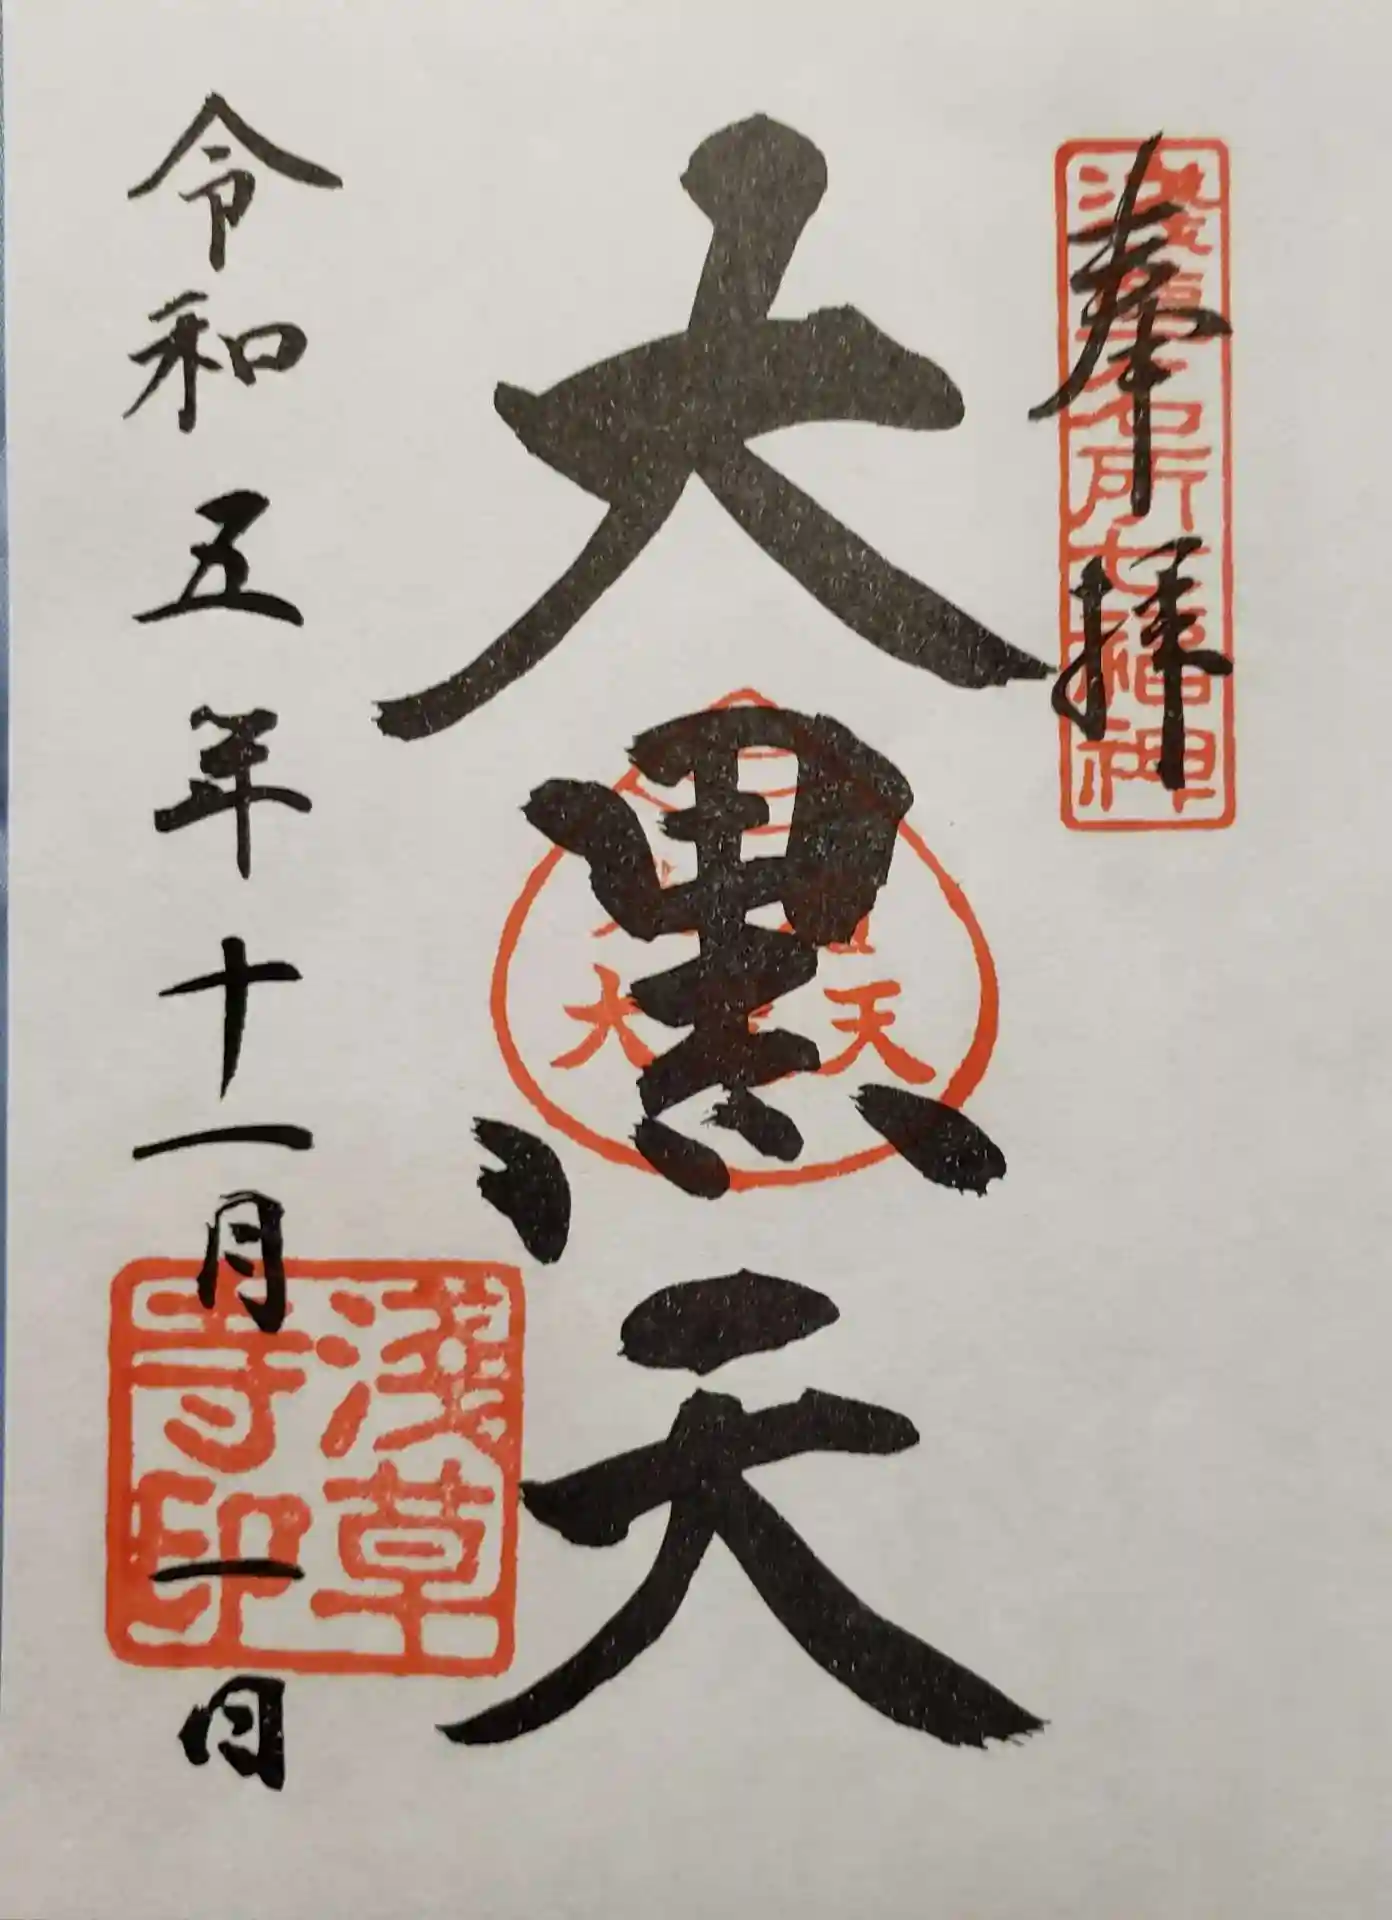 奉拝
淺草名所七福神
大黒天
大黒天
令和五年十一月一日
淺草
寺印